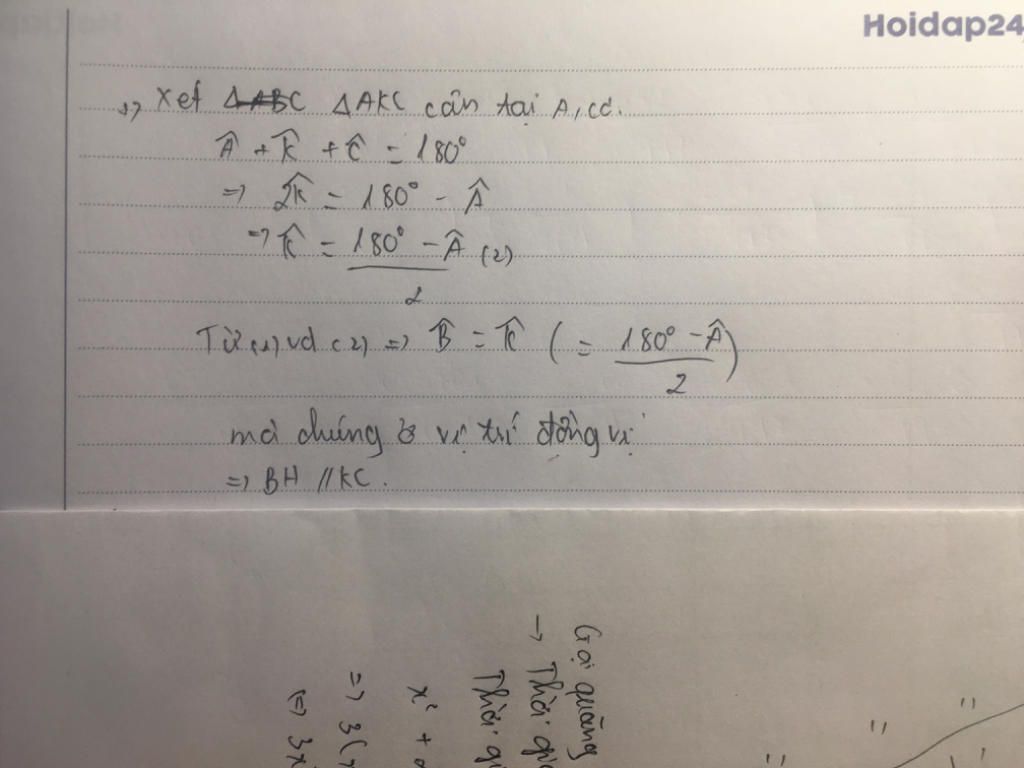 Hoidap24
+) Xét ΔABC ΔAKC cân tại A, có.
Â + K̂ + Ĉ = 180°
=> 2K̂ = 180° - Â
=> K̂ = (180° - Â)/2 (2)
Từ (1) và (2) => B̂ = K̂ (= (180° - Â)/2)
mà chúng ở vị trí đồng vị
=> BH // KC.
Gọi quãng
→ Thời
Thời
x² +
=> 3(
(=) 3x